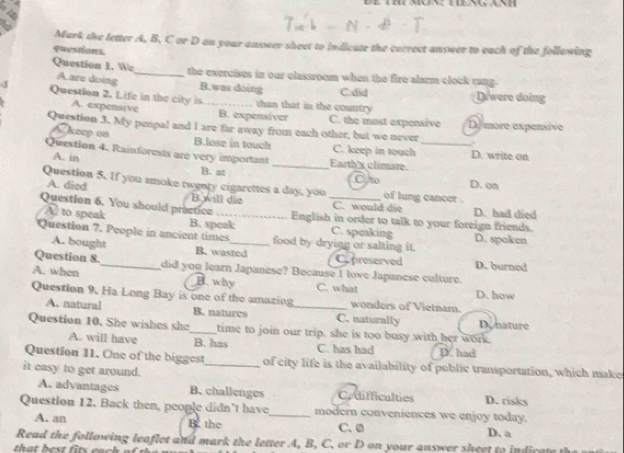 Mark the letter A, B, C or D on your answer sheet to indicate the correct answer to each of the following
questions.
Question 1. We________ the exercises in our classroom when the fire alarm clock rang.
A.are doing B.was doing C.did D.were doing
Question 2. Life in the city is ............. than that in the country
A. expensive B. expensiver C. the most expensive D. more expensive
Question 3. My penpal and I are far away from each other, but we never ________.
A. keep on B.lose in touch C. keep in touch D. write on
Question 4. Rainforests are very important ________Earth's climate.
A. in B. at C. to D. on
Question 5. If you smoke twenty cigarettes a day, you ________ of lung cancer .
A. died B. will die C. would die D. had died
Question 6. You should practice ............... English in order to talk to your foreign friends.
A. to speak B. speak C. speaking D. spoken
Question 7. People in ancient times________ food by drying or salting it.
A. bought B. wasted C. preserved D. burned
Question 8.________ did you learn Japanese? Because I love Japanese culture.
A. when B. why C. what D. how
Question 9. Ha Long Bay is one of the amazing________ wonders of Vietnam.
A. natural B. natures C. naturally D. nature
Question 10. She wishes she____ time to join our trip. she is too busy with her work.
A. will have B. has C. has had D. had
Question 11. One of the biggest________ of city life is the availability of public transportation, which make
it easy to get around.
A. advantages B. challenges C. difficulties D. risks
Question 12. Back then, people didn't have______ modern conveniences we enjoy today.
A. an B. the C. Ø D. a
Read the following leaflet and mark the letter A, B, C, or D on your answer sheet to indicate the
that best fits each of the